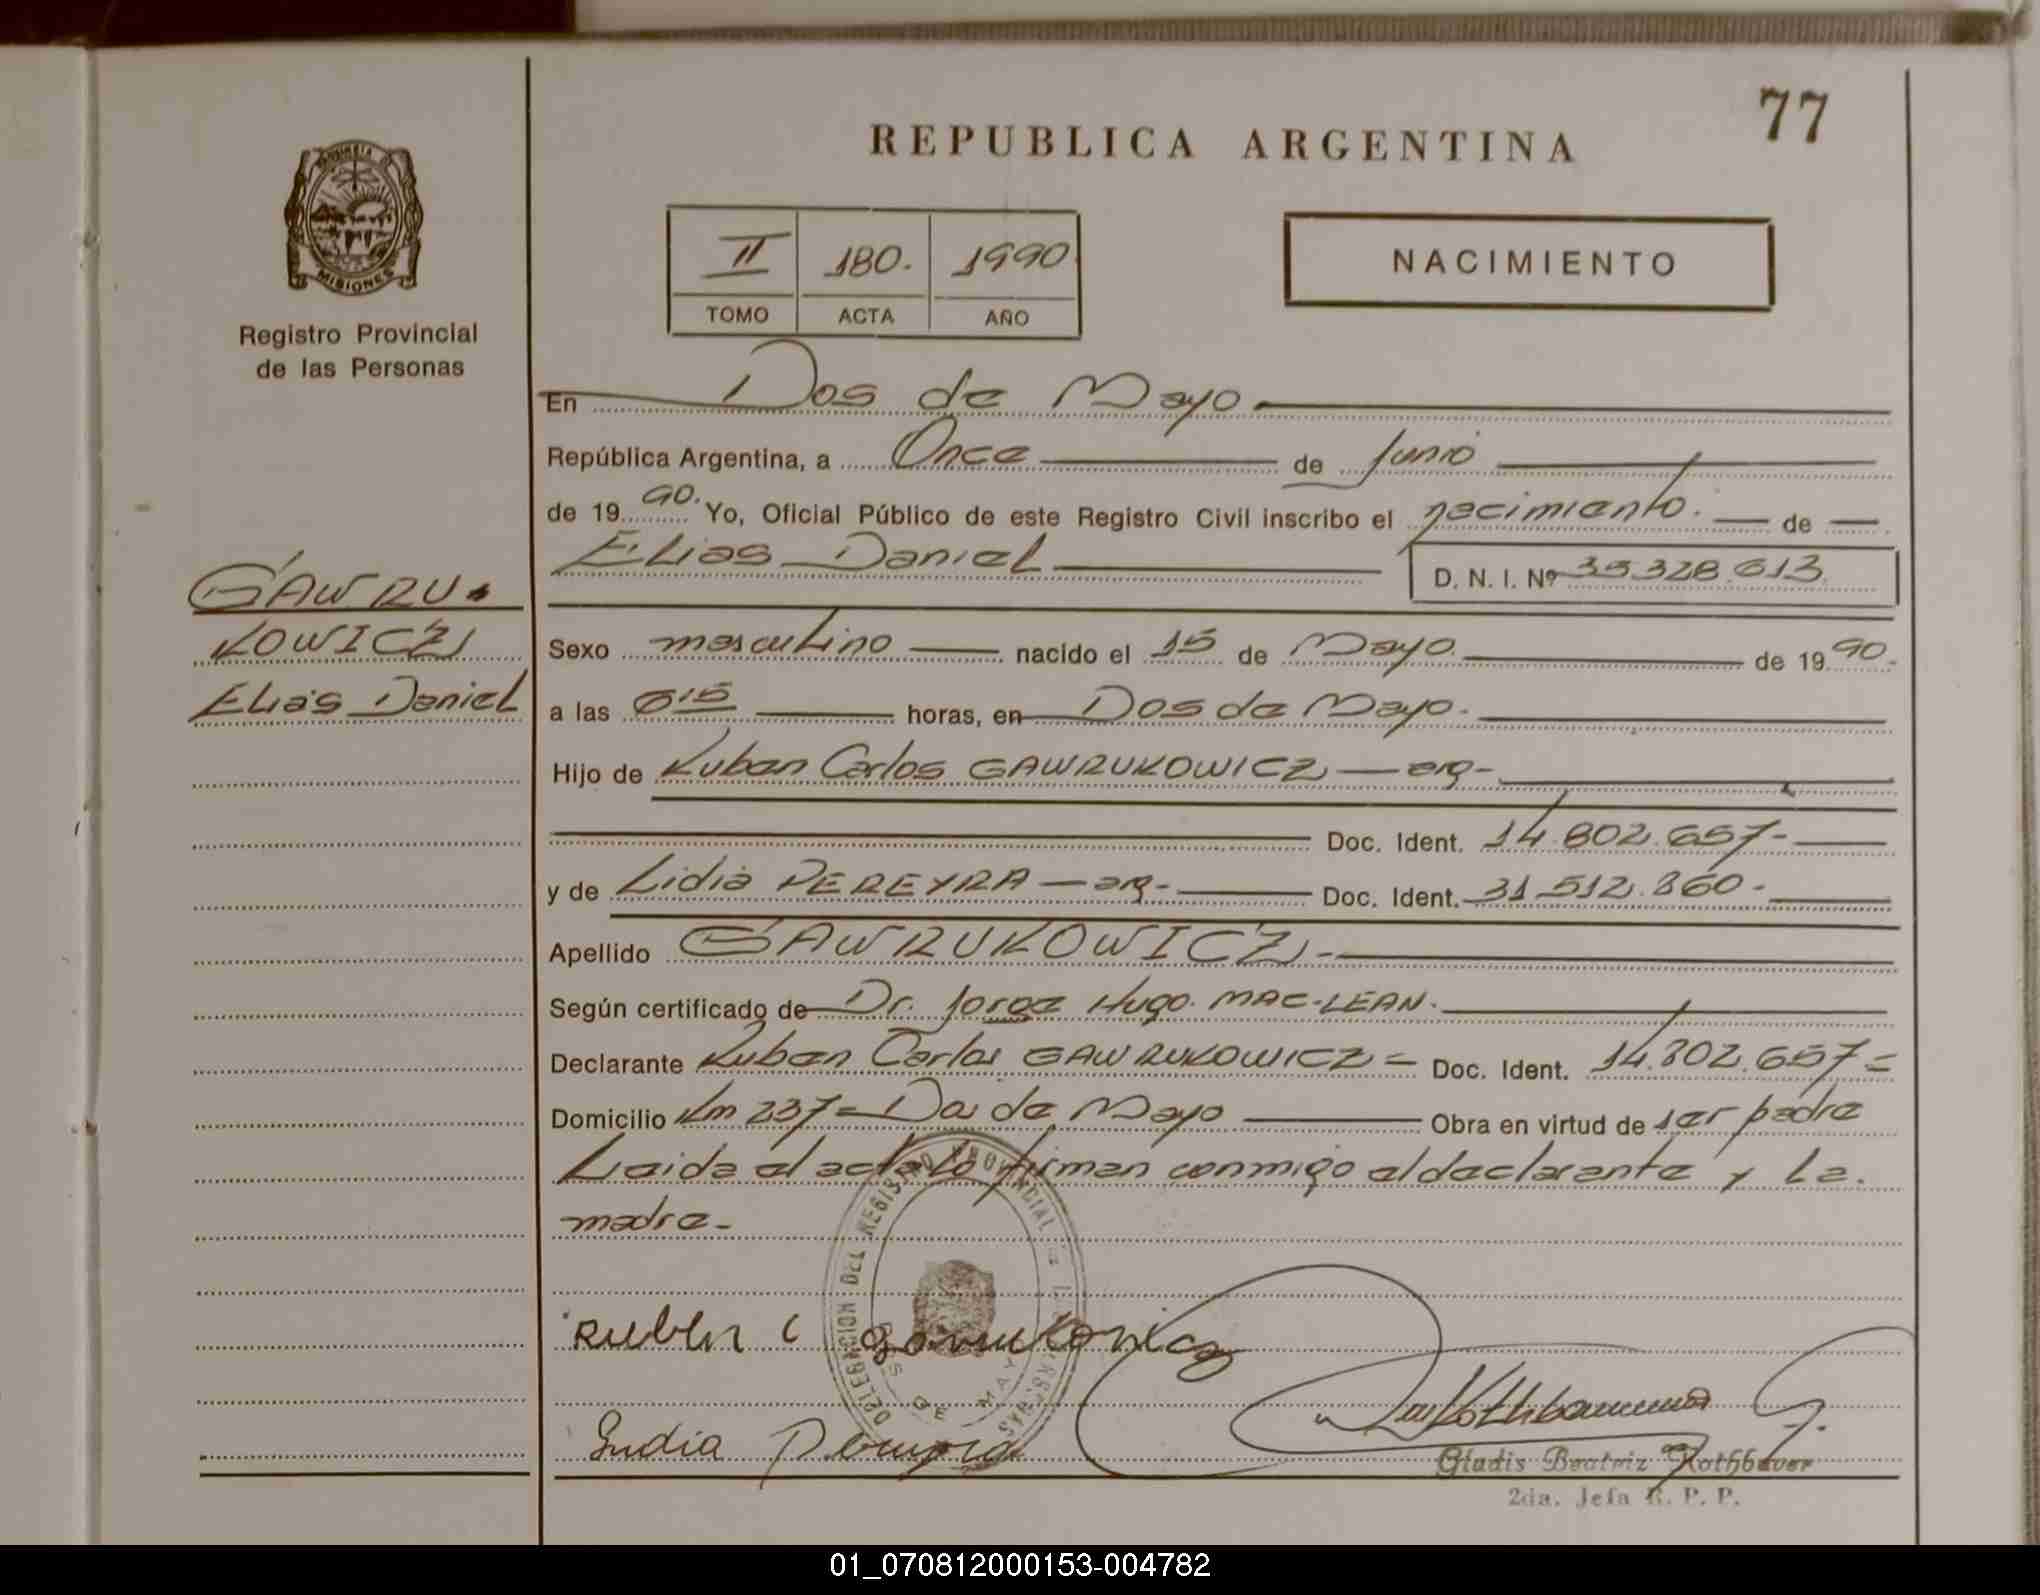 77
REPUBLICA ARGENTINA
PROVINCIA DE
MISIONES
Registro Provincial
de las Personas
II 180. 1990
TOMO ACTA AÑO
NACIMIENTO
En Dos de Mayo
República Argentina, a Once de Junio
de 19 90. Yo, Oficial Público de este Registro Civil inscribo el nacimiento. de
Elias Daniel D. N. I. Nº 35.328.613
GAWRU-
KOWICZ
Elias Daniel
Sexo masculino nacido el 15 de Mayo de 19 90.
a las 6 15 horas, en Dos de Mayo.
Hijo de Ruben Carlos GAWRUKOWICZ — arg-
Doc. Ident. 14.802.657-
y de Lidia PEREYRA — arg- Doc. Ident. 31.512.860-
Apellido GAWRUKOWICZ-
Según certificado de Dr. Jorge Hugo MAC-LEAN.
Declarante Ruben Carlos GAWRUKOWICZ= Doc. Ident. 14.802.657=
Domicilio Km 237= Dos de Mayo Obra en virtud de ser padre
Leida el acta lo firman conmigo el declarante y la.
madre-
DELEGACION DEL REGISTRO PROVINCIAL DE LAS PERSONAS
DOS DE MAYO
Ruben C Gawrukowicz
Lidia Pereyra
Gladis Beatriz Rothbaver
2da. Jefa R. P. P.
01_070812000153-004782